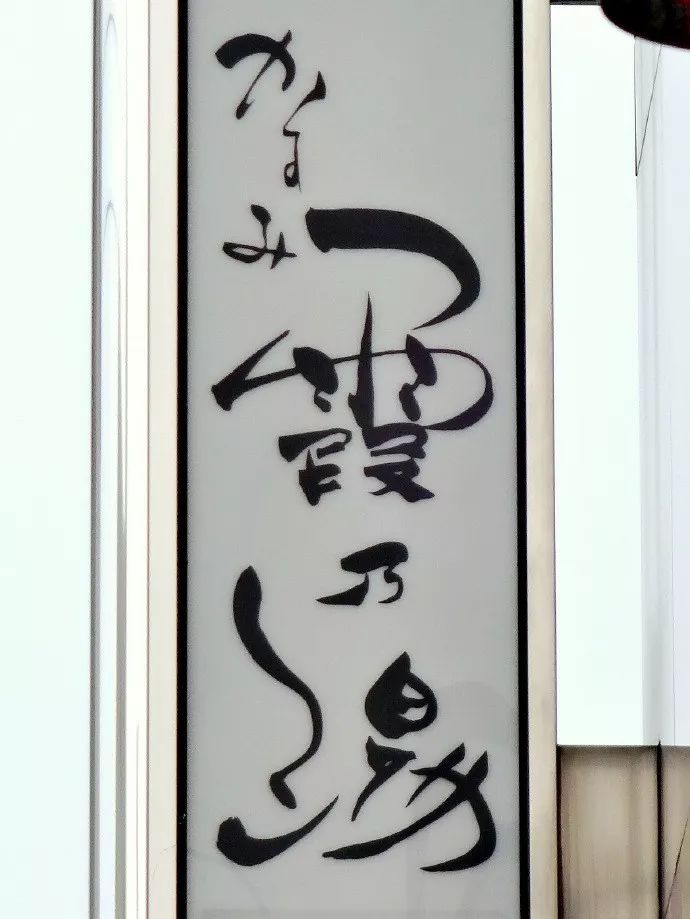 かすみ
霞乃湯